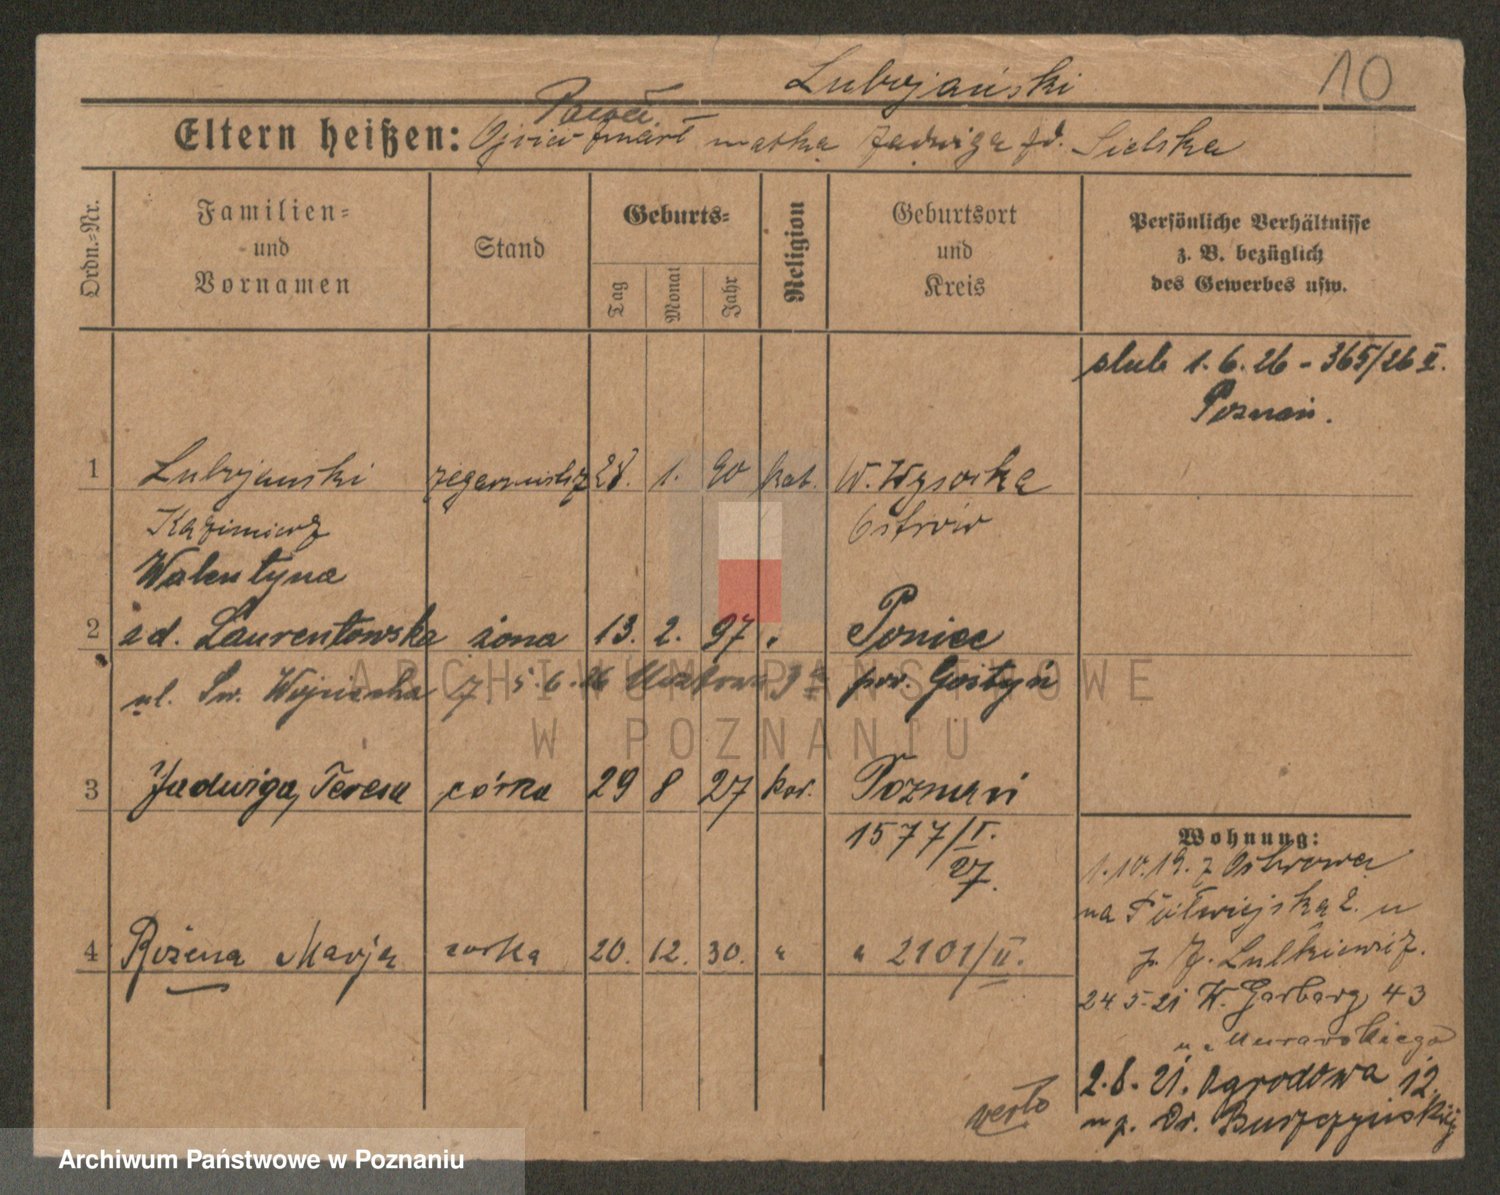 Lubojański
10
Paweł
Eltern heißen: Ojciec zmarł matka Jadwiga zd. Sielska
Ordn.-Nr.
Familien-
und
Vornamen
Stand
Geburts-
Tag
Monat
Jahr
Religion
Geburtsort
und
Kreis
Persönliche Verhältnisse
z. B. bezüglich
des Gewerbes usw.
ślub 1.6.26 - 365/26 II.
Poznań.
1 Lubojański zegarmistrz 28. 1. 90 kat. W. Wysocka
Kazimierz Ostrów
Walentyna
2 zd. Laurentowska żona 13. 2. 97 " Poniec
ul. Św. Wojciecha 7 5.6.26 pow. Gostyń
3 Jadwiga, Teresa córka 29 8 27 kat. Poznań
1577/I.
27.
4 Bożena Marja córka 20. 12. 30. " " 2101/II.
Wohnung:
1.10.19. z Ostrowa
na Półwiejską 2. u
p. J.
24.5.21 W. Garbary 43
u " Murawskiego
2.8.21. Ogrodowa 12.
u p. Dr.
verte
ARCHIWUM PAŃSTWOWE
W POZNANIU
Archiwum Państwowe w Poznaniu